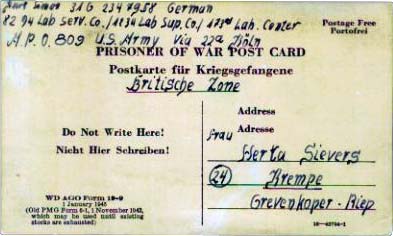 31G 2347958 German
8294 Lab Serv. Co./1134 Lab Sup. Co./ Lab. Center
A.P.O. 809 U.S. Army Via 22a Köln
Postage Free
Portofrei
PRISONER OF WAR POST CARD
Postkarte für Kriegsgefangene
Britische Zone
Do Not Write Here!
Nicht Hier Schreiben!
Address
Adresse
Frau
Herta Sievers
(24) Krempe
Grevenkoper-Riep
WD AGO Form 19-9
1 January 1945
(Old PMG Form 6-1, 1 November 1943,
which may be used until existing
stocks are exhausted)